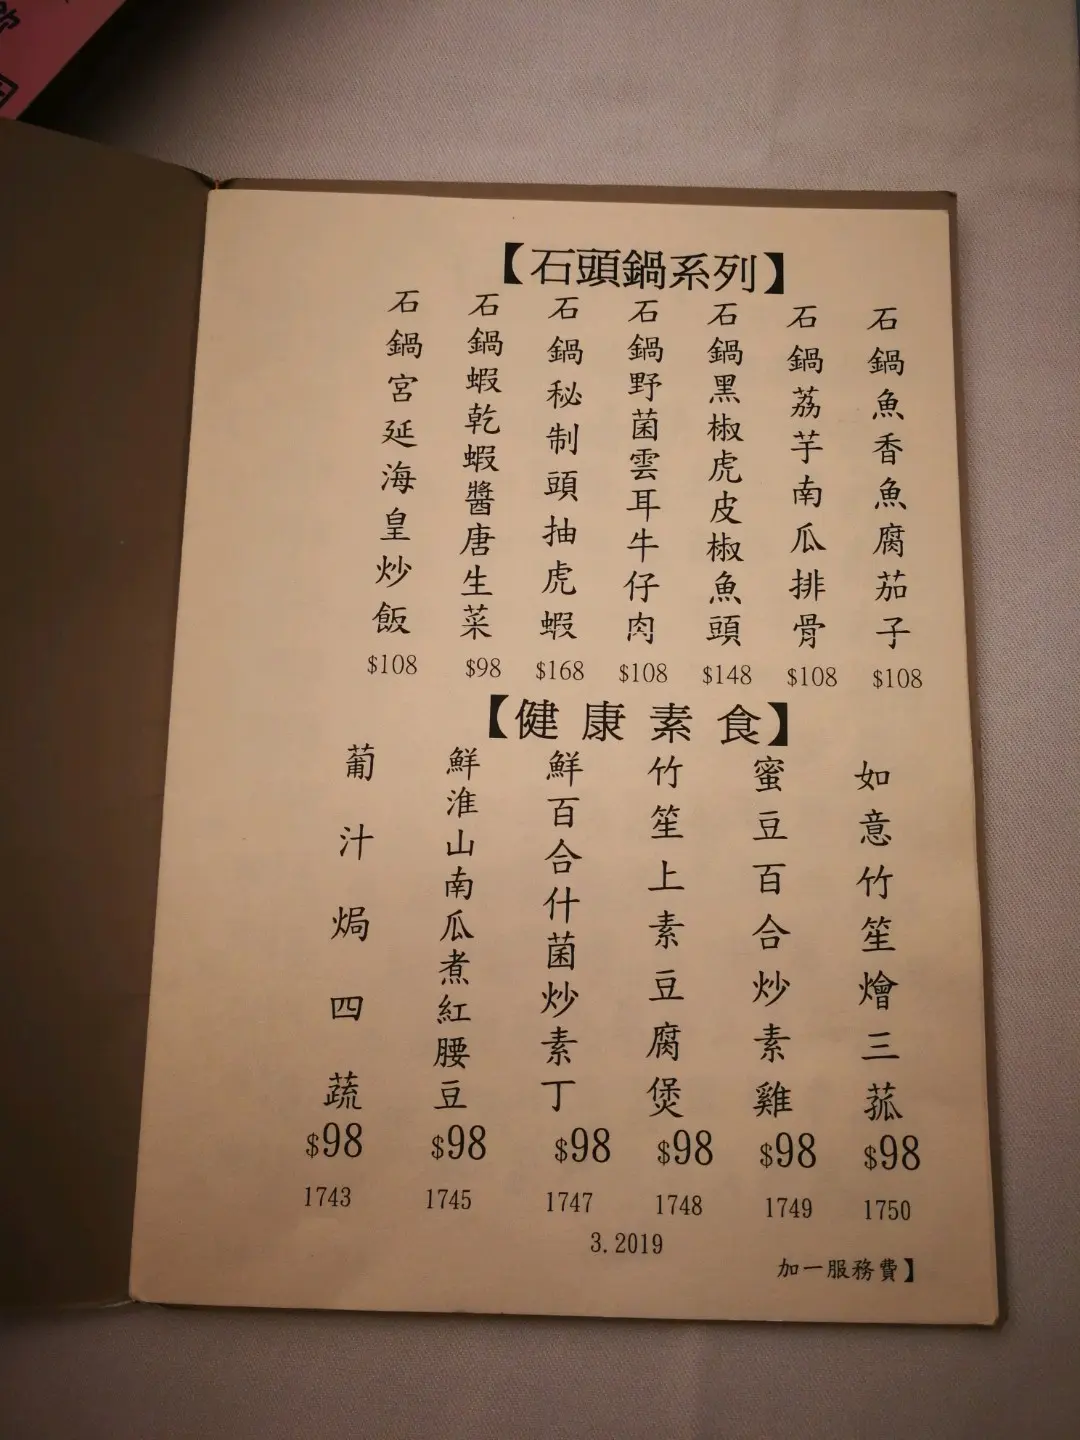 【石頭鍋系列】
石鍋魚香魚腐茄子
$108
石鍋荔芋南瓜排骨
$108
石鍋黑椒虎皮椒魚頭
$148
石鍋野菌雲耳牛仔肉
$108
石鍋秘制頭抽虎蝦
$168
石鍋蝦乾蝦醬唐生菜
$98
石鍋宮延海皇炒飯
$108
【健康素食】
如意竹笙燴三菰
$98
1750
蜜豆百合炒素雞
$98
1749
竹笙上素豆腐煲
$98
1748
鮮百合什菌炒素丁
$98
1747
鮮淮山南瓜煮紅腰豆
$98
1745
葡汁焗四蔬
$98
1743
3.2019
加一服務費】